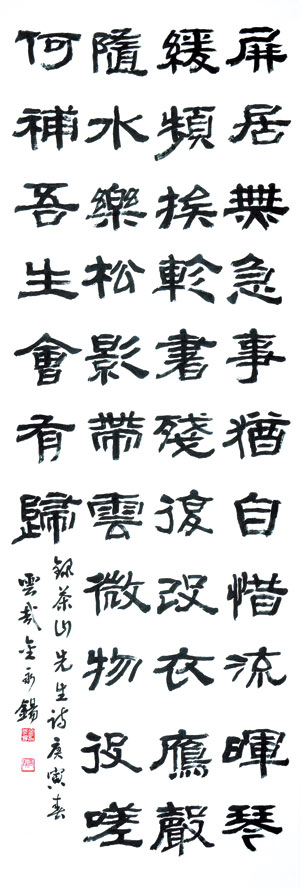 屏居無急事猶自惜流暉琴
緩頻挨軫書殘復改衣鷹聲
隨水樂松影帶雲微物役嗟
何補吾生會有歸
錄茶山先生詩庚寅春
雲哉金永錫